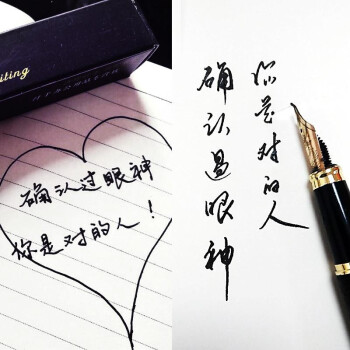 iting
确认过眼神
你是对的人！
确认过眼神
你是对的人